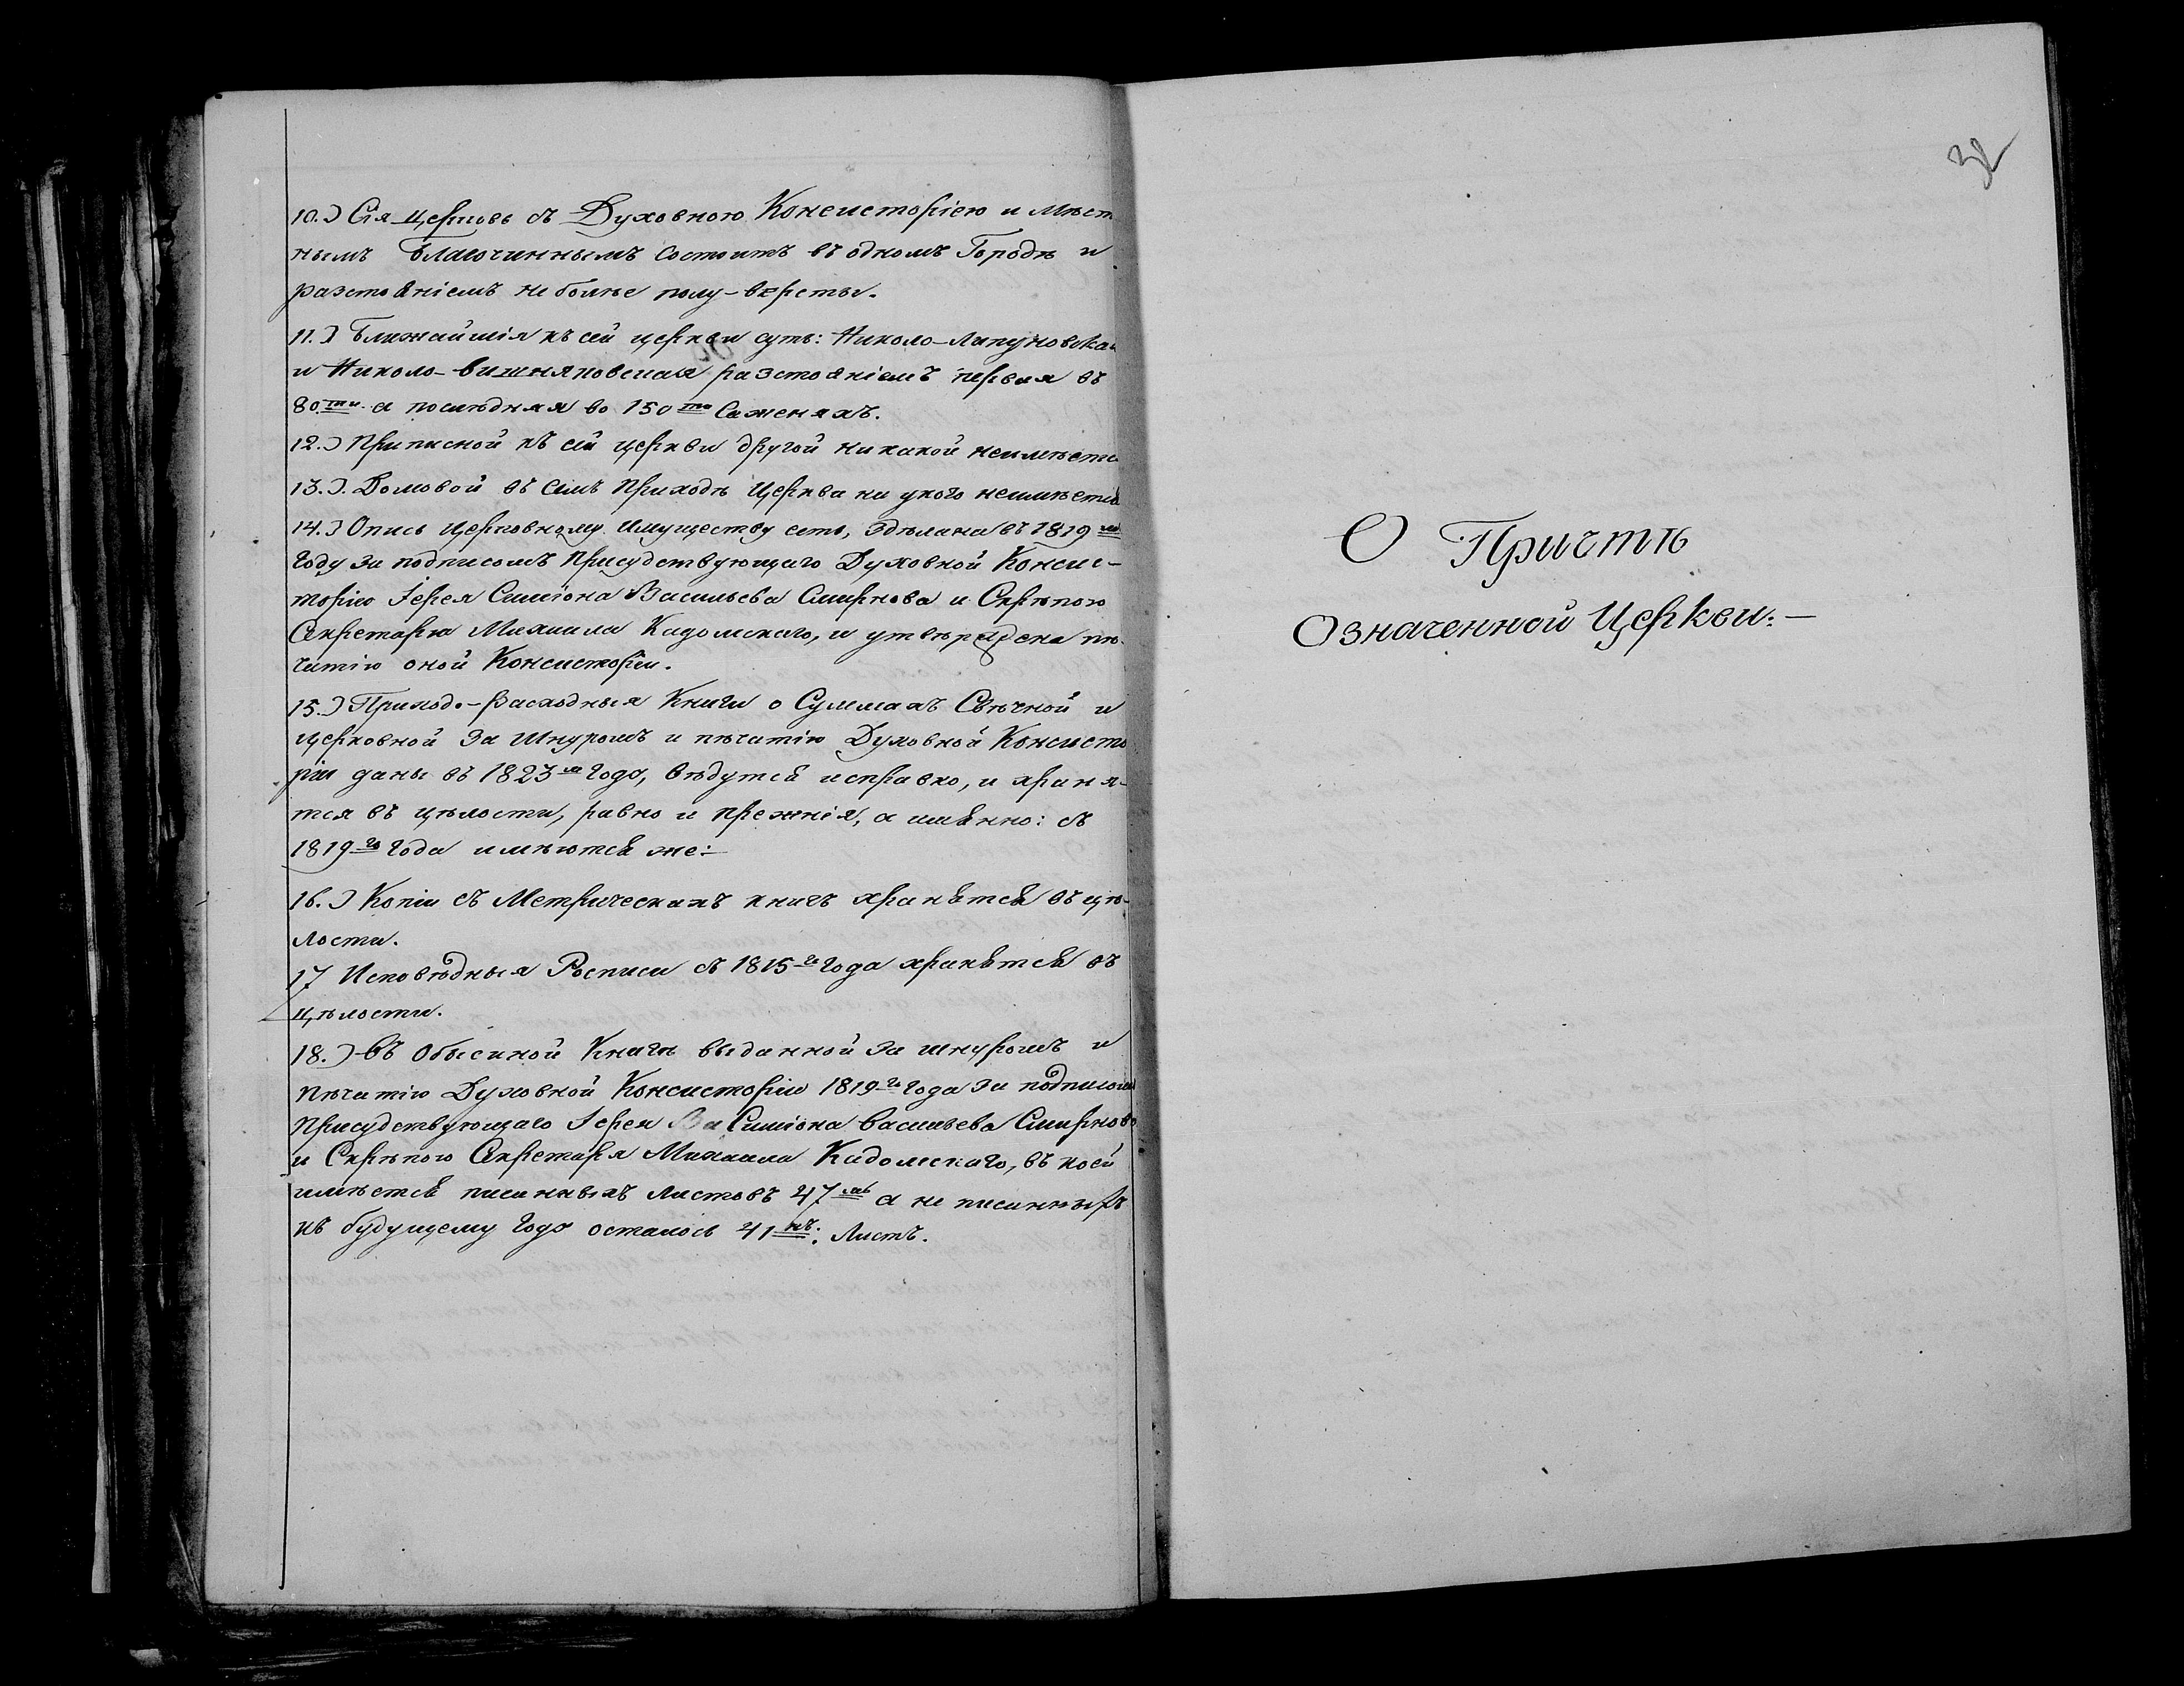 10.) Сія Церковь съ Духовною Консисторіею и Мѣст
нымъ Благочиннымъ состоитъ въ одномъ Городѣ и
разстояніемъ не болѣе полу-версты.
11.) Ближайшія къ сей церкви суть: Николо-Ляпуновская
и Николо-вишняковская разстояніемъ первая въ
80.ти а послѣдняя во 150 то Саженяхъ.
12.) Приписной къ сей церкви другой никакой неимѣетс
13.). Домовой въ семъ приходѣ Церкви ни укого неимѣется
14.) Опись церковному Имуществу есть, здѣлана въ 1819 м
Году за подписомъ присудствующаго Духовной Консис-
торіи Іерея Симіона Васильева Смирнова и Скрѣпою
Секретаря Михаила Кадомскаго, и утверждена пѣ-
чатію оной Консисторіи.
15.) Приходо-расходныя Книги о Суммахъ Свѣчной и
церковной за Шнуромъ и пѣчатію Духовной Консисто
ріи даны въ 1823 м Годѣ, вѣдутся исправно, и храня-
тся въ цѣлости, равно и прежнія, а имянно: съ
1819 го Года имѣются же:—
16.) Копіи съ Метрическихъ книгъ хранятся въ цѣ-
лости.
17 Исповѣдныя Росписи съ 1815 го Года хранятся въ
цѣлости.
18.) въ Обыскной Книгѣ выданной за шнуромъ и
пѣчатію Духовной Консисторіи 1819 го Года за подписомъ
присудствующаго Іерея Симіона васильева Смирнова
и Скрѣпою Секретаря Михаила Кадомскаго, въ коей
имѣется писанныхъ листовъ 47 мь а не писанныхъ
къ будущему Году осталось 41 нъ. Листъ.
32
О Причтѣ
Означенной Церкви:—